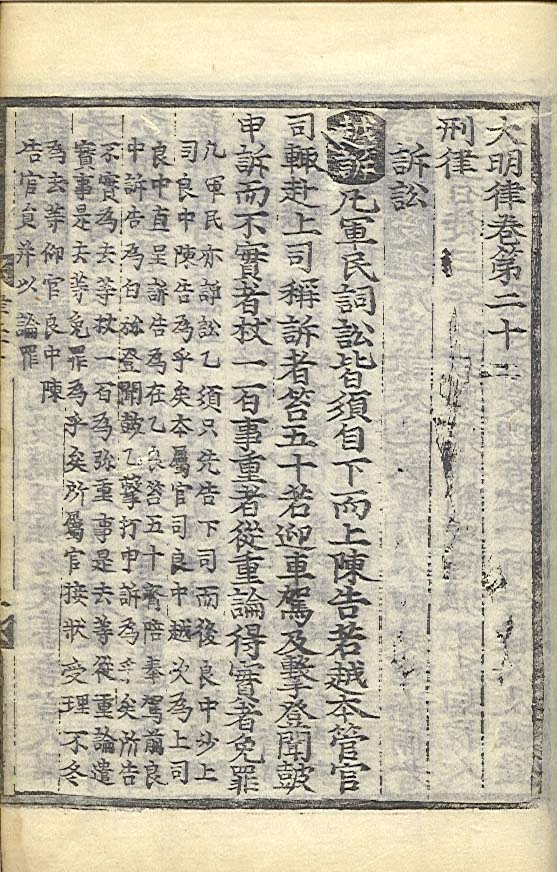 大明律卷第二十二
刑律
訴訟
越訴 凡軍民詞訟皆須自下而上陳告若越本管官
司輒赴上司稱訴者笞五十若迎車駕及擊登聞鼓
申訴而不實者杖一百事重者從重論得實者免罪
凡軍民亦詞訟乙須只先告下司而後良中沙上
司良中陳告為乎矣本屬官司良中越次為上司
良中直呈訴告為在乙良笞五十齊陪奉駕前良
中訴告為白弥登聞鼓乙擊打申訴為乎矣所告
不實為去等杖一百為弥重事是去等從重論遣
實事是去等免罪為乎矣所屬官接狀受理不冬
為去等仰官良中陳
告官員并以論罪